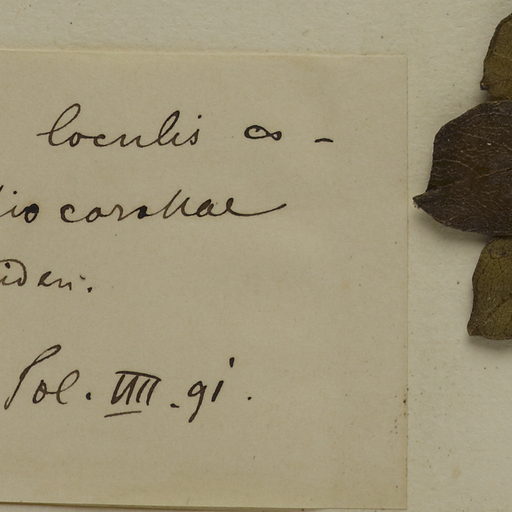 loculis ∞ -
io corollae
iden.
Sol. IIII. 91.